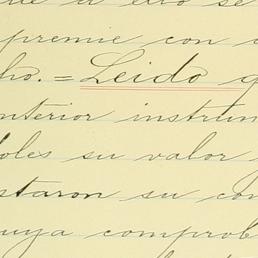 a ello se
premie con
ho. = Leido q
nterior instrum
doles su valor
staron su con
uya comprob